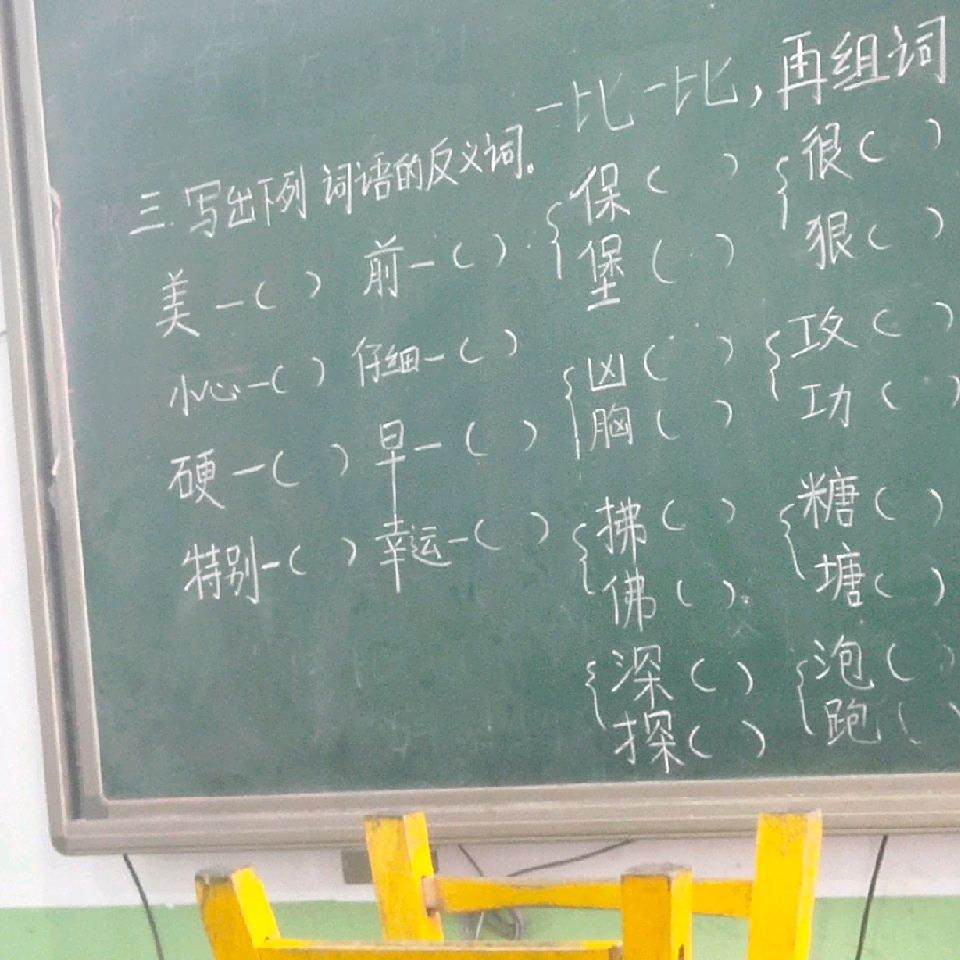 三.写出下列词语的反义词。
美—( ) 前—( )
小心—( ) 仔细—( )
硬—( ) 早—( )
特别—( ) 幸运—( )
一比一比,再组词
保( ) 很( )
堡( ) 狠( )
凶( ) 攻( )
胸( ) 功( )
拂( ) 糖( )
佛( ) 塘( )
深( ) 泡( )
探( ) 跑( )